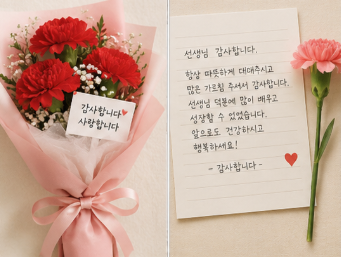 감사합니다
사랑합니다
선생님 감사합니다.
항상 따뜻하게 대해주시고
많은 가르침 주셔서 감사합니다.
선생님 덕분에 많이 배우고
성장할 수 있었습니다.
앞으로도 건강하시고
행복하세요!
- 감사합니다 -